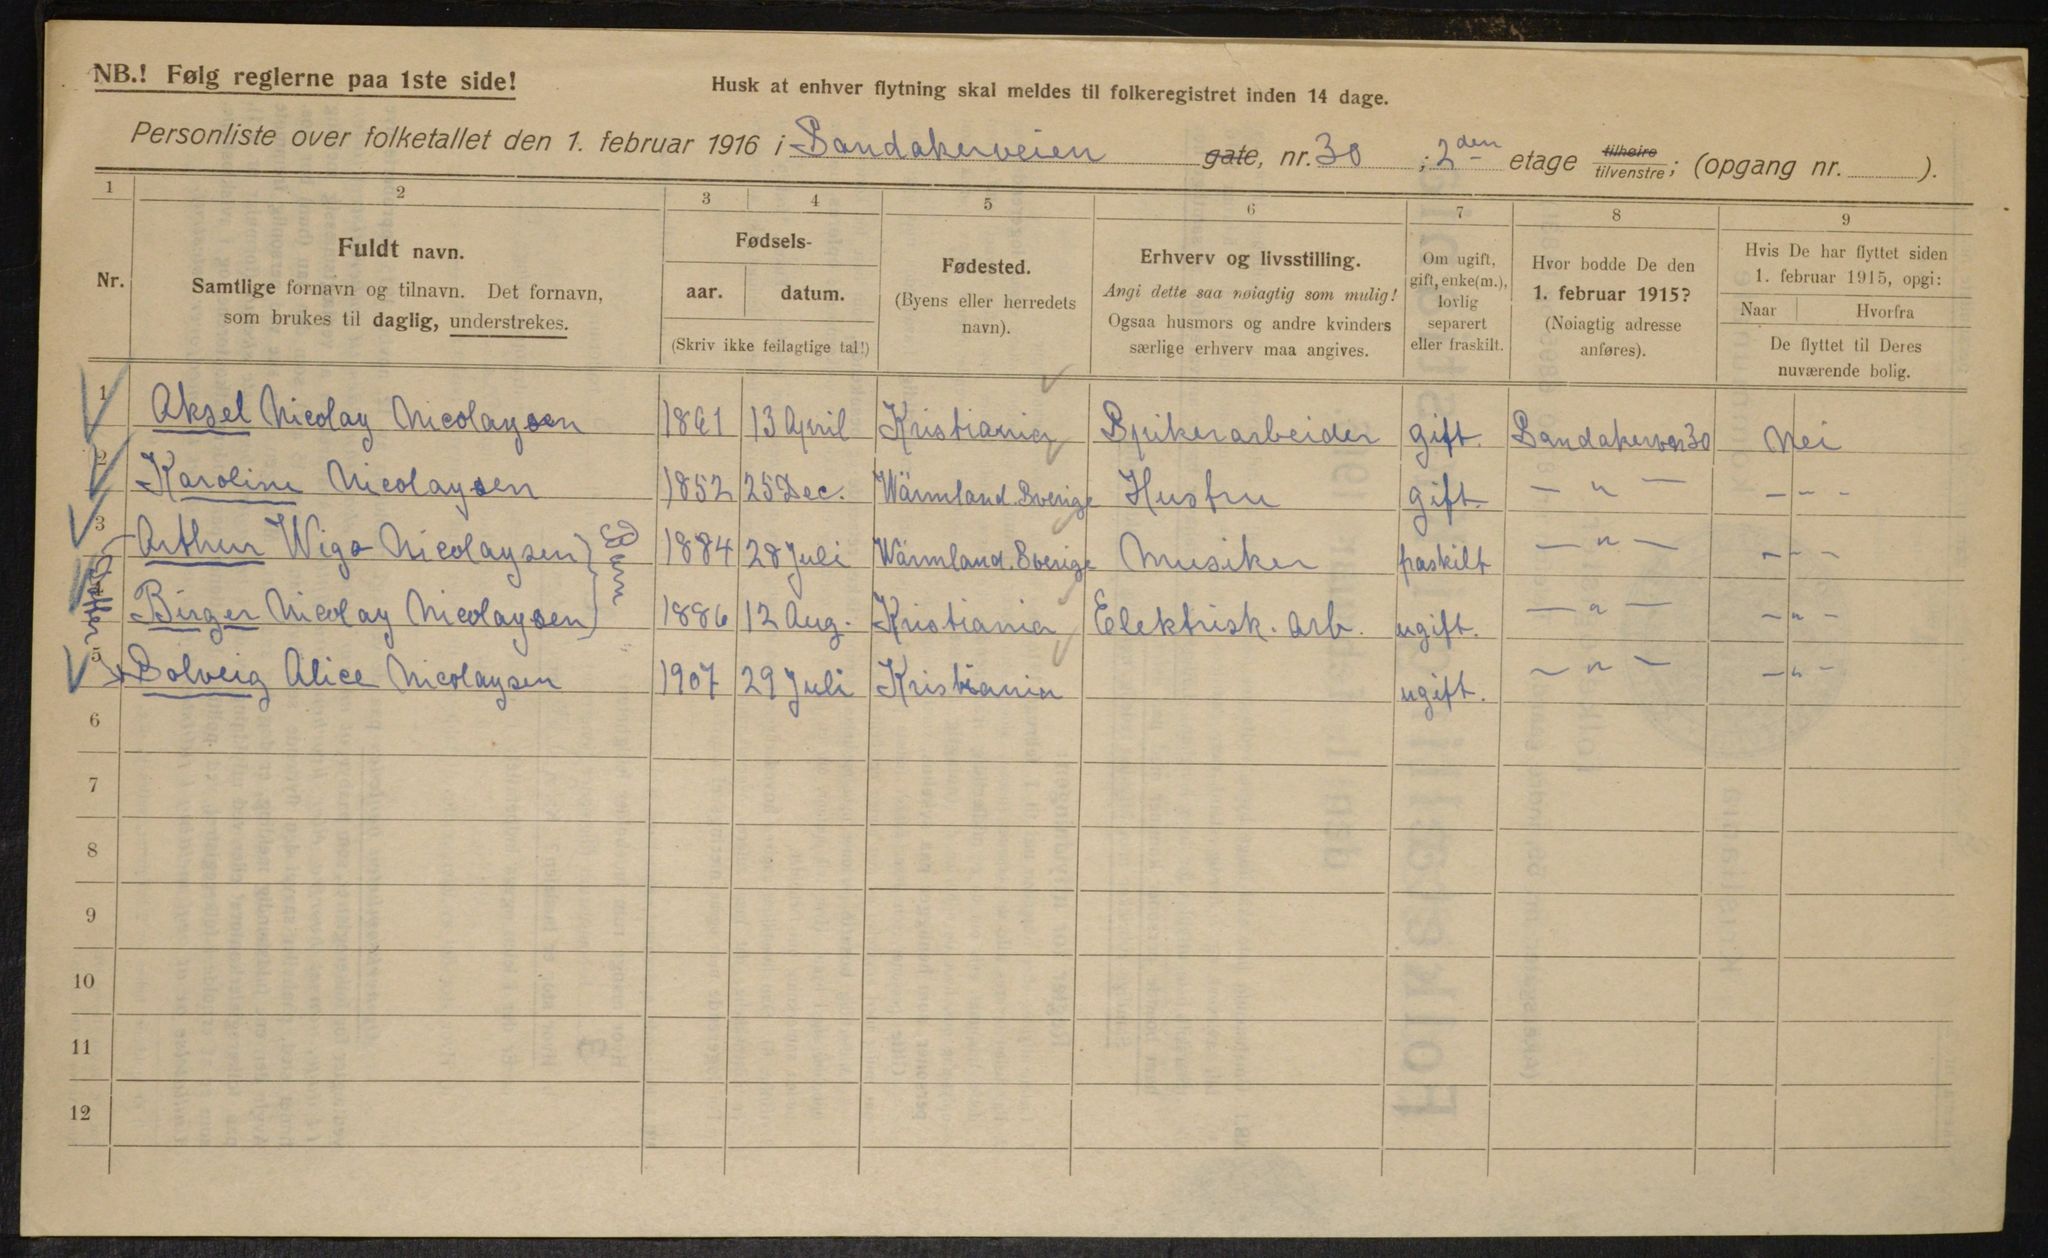 NB.! Følg reglerne paa 1ste side!
Husk at enhver flytning skal meldes til folkeregistret inden 14 dage.
Personliste over folketallet den 1. februar 1916 i Sandakerveien gate, nr. 30 ; 2den etage tilhøire tilvenstre; (opgang nr. ).
1 2 3 4 5 6 7 8 9
Nr.
Fuldt navn.
Samtlige fornavn og tilnavn. Det fornavn,
som brukes til daglig, understrekes.
Fødsels-
aar. datum.
(Skriv ikke feilagtige tal!)
Fødested.
(Byens eller herredets
navn).
Erhverv og livsstilling.
Angi dette saa nøiagtig som mulig!
Ogsaa husmors og andre kvinders
særlige erhverv maa angives.
Om ugift,
gift, enke(m.),
lovlig
separert
eller fraskilt.
Hvor bodde De den
1. februar 1915?
(Nøiagtig adresse
anføres).
Hvis De har flyttet siden
1. februar 1915, opgi:
Naar Hvorfra
De flyttet til Deres
nuværende bolig.
1 Aksel Nicolay Nicolaysen 1861 13 April Kristiania Spikerarbeider gift. Sandakervei 30 Nei
2 Karoline Nicolaysen 1852 25 Dec. Wärmland. Sverige Hustru gift. — " — — " —
3 Arthur Wigo Nicolaysen 1884 28 Juli Wärmland. Sverige Musiker fraskilt — " — — " —
Barn
4 Birger Nicolay Nicolaysen 1886 12 Aug. Kristiania Elektrisk. Arb. ugift. — " — — " —
Datter
5 Solveig Alice Nicolaysen 1907 29 Juli Kristiania ugift. — " — — " —
6
7
8
9
10
11
12